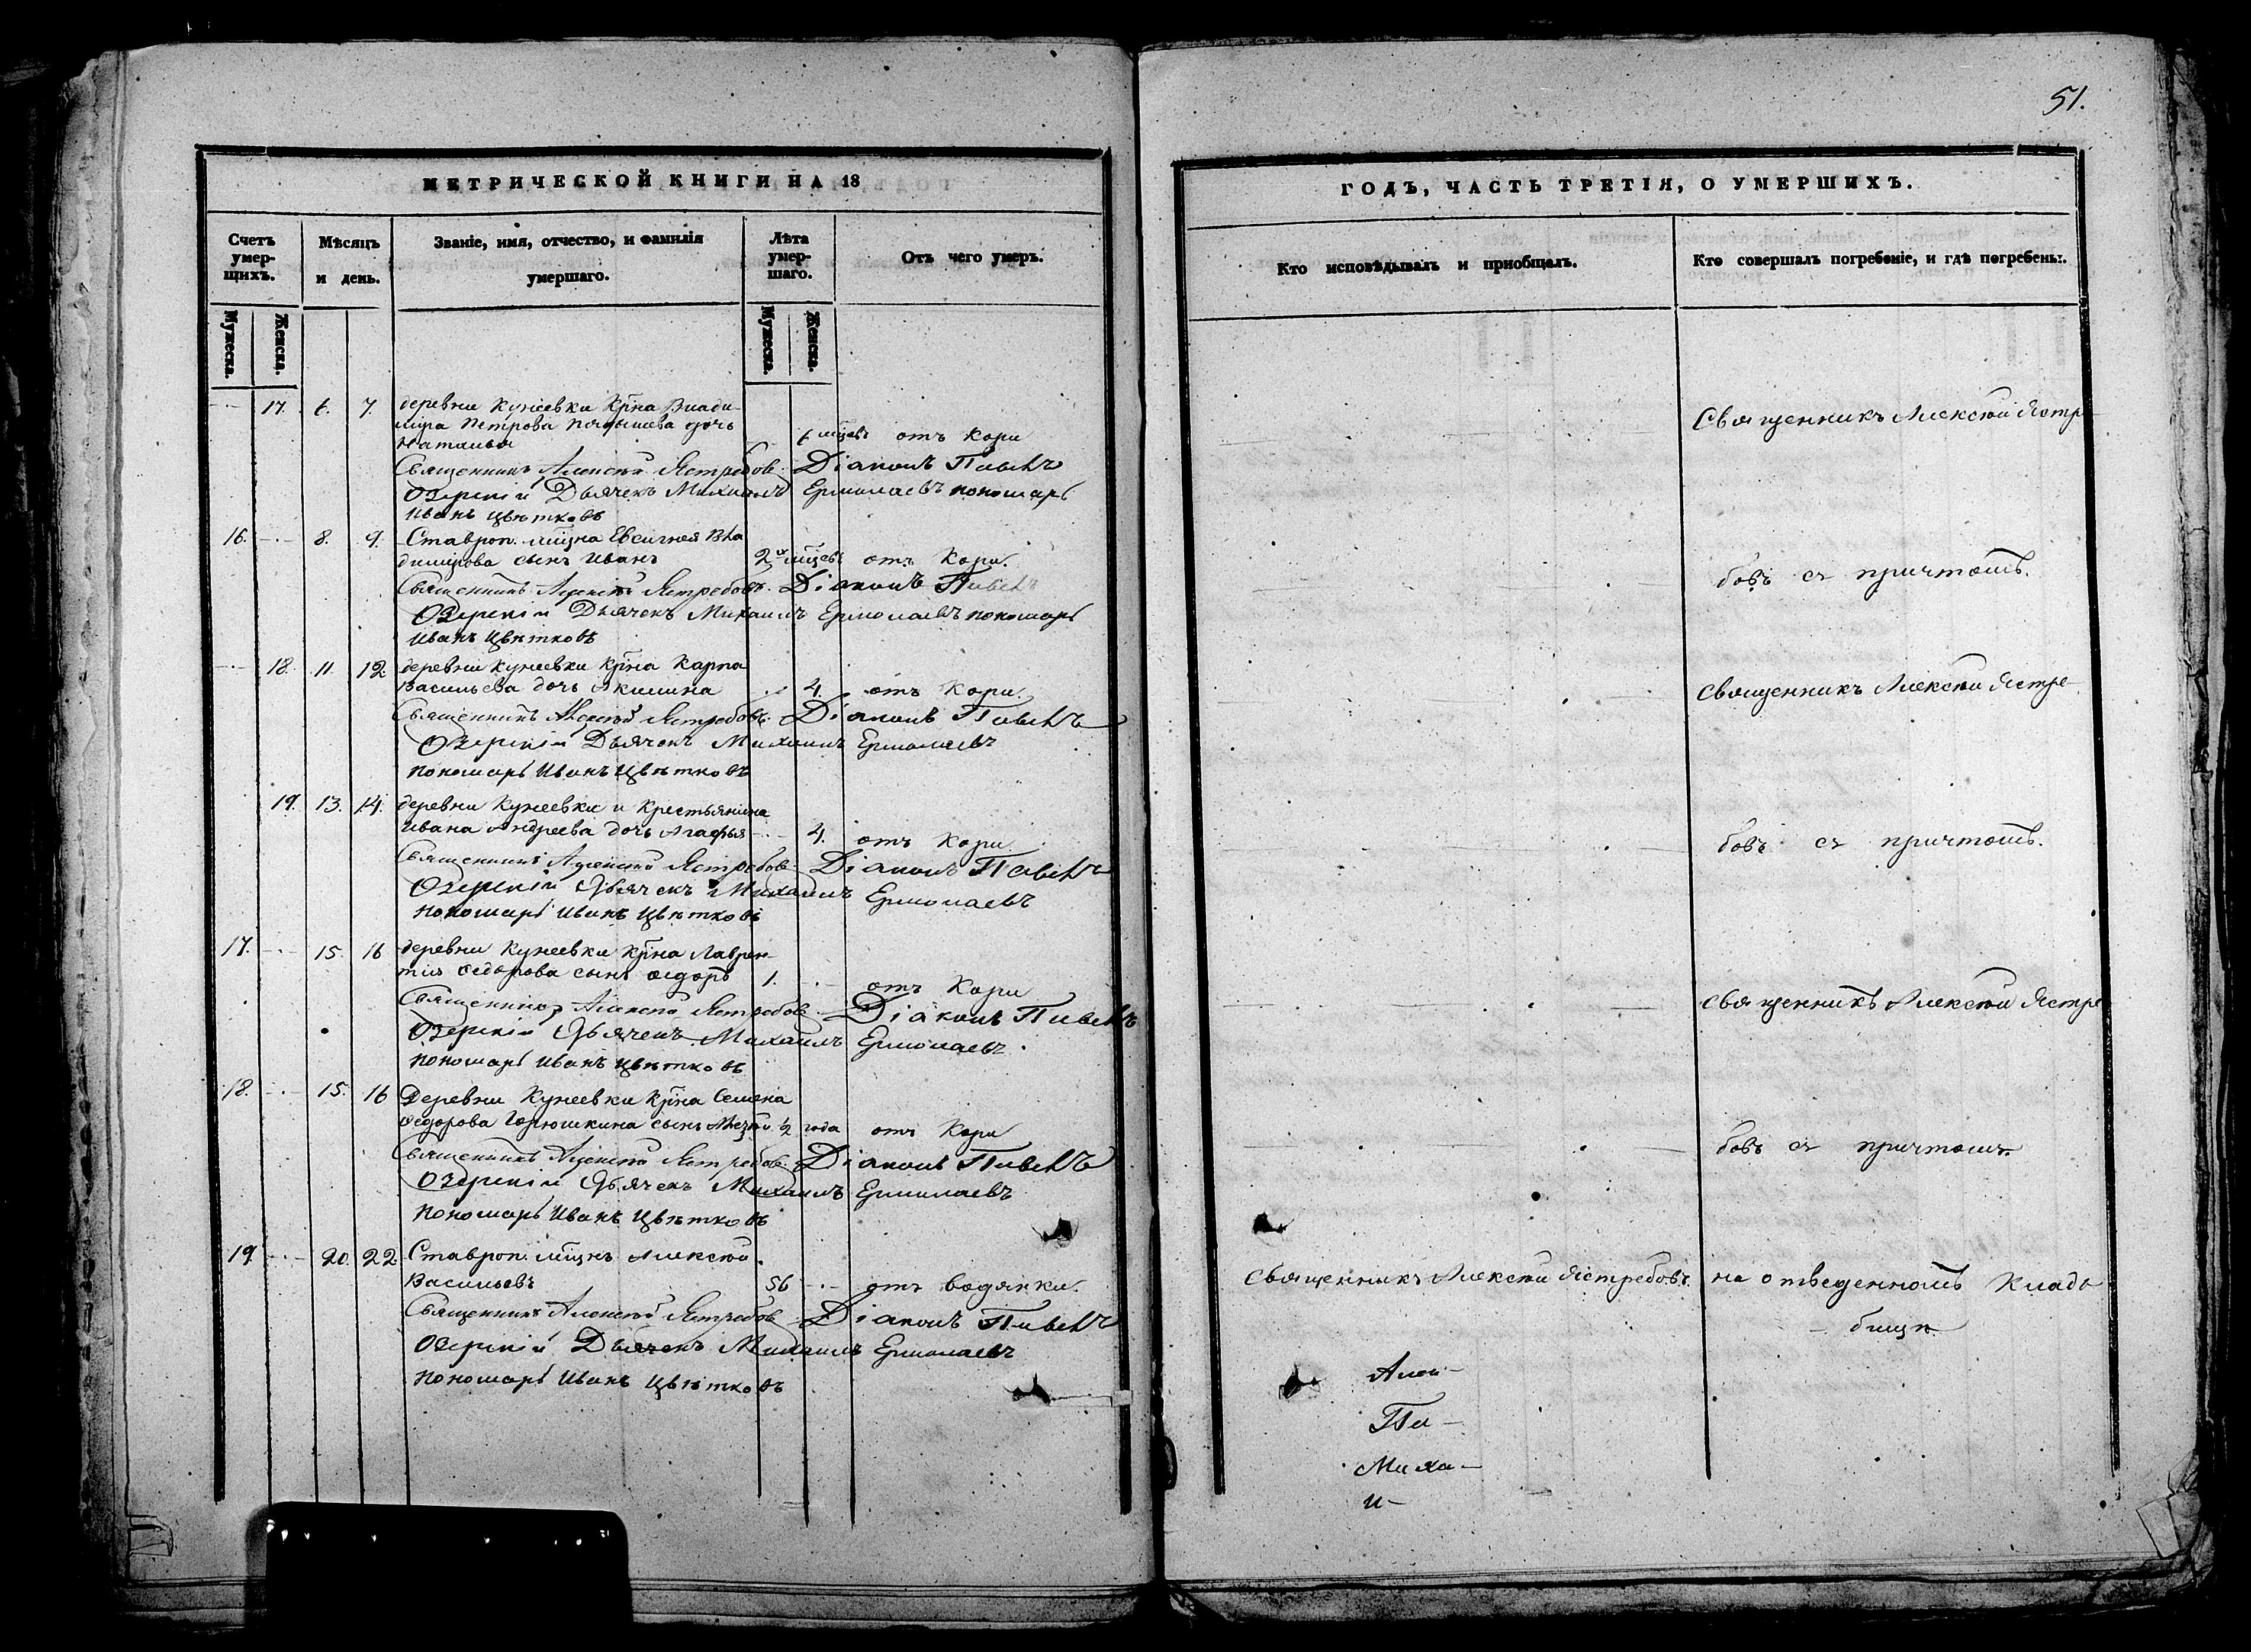 51.
МЕТРИЧЕСКОЙ КНИГИ НА 18
Счетъ умер- щихъ.
Мѣсяцъ и день.
Званіе, имя, отчество, и фамилія умершаго.
Лѣта умер- шаго.
Отъ чего умеръ.
Мужеска. Женска.
Мужеска. Женска.
17. 6. 7. деревни Кунеевки Крна Влади-
мира Петрова дочь
Наталья 6 мцевъ отъ Кори
Священникъ Алексѣй Ястребовъ Діаконъ Павелъ
Озерскій Дьячекъ Михаилъ Ермолаевъ пономарь
Иванъ Цвѣтковъ
16. 8. 9. Ставроп. мщна Евсигнея Вла
димирова сынъ Иванъ 2хъ мцевъ отъ Кори.
Священникъ Алексѣй Ястребовъ. Діаконъ Павелъ
Озерскій Дьячекъ Михаилъ Ермолаевъ пономарь
Иванъ Цвѣтковъ
18. 11. 12 деревни Кунеевки Крна Карпа
Васильева дочь Акилина 4. отъ Кори.
Священникъ Алексѣй Ястребовъ. Діаконъ Павелъ
Озерскій Дьячекъ Михаилъ Ермолаевъ
пономарь Иванъ Цвѣтковъ
19. 13. 14. деревни Кунеевки и Крестьянина
Ивана Андреева дочь Агафья 4. отъ Кори.
Священникъ Алексѣй Ястребовъ Діаконъ Павелъ
Озерскій Дьячекъ Михаилъ Ермолаевъ
пономарь Иванъ Цвѣтковъ
17. 15. 16 деревни Кунеевки Крна Лаврен-
тія Ѳедорова сынъ Ѳедоръ 1. отъ Кори
Священникъ Алексѣй Ястребовъ Діаконъ Павелъ
Озерскій Дьячекъ Михаилъ Ермолаевъ.
пономарь Иванъ Цвѣтковъ
18. 15. 16 Деревни Кунеевки Крна Семена
Ѳедорова Горюшкина сынъ ½ года отъ Кори
Священникъ Алексѣй Ястребовъ. Діаконъ Павелъ
Озерскій Дьячекъ Михаилъ Ермолаевъ
пономарь Иванъ Цвѣтковъ
19. 20. 22 Ставроп. мщнъ Алексѣй
Васильевъ 56 отъ водянки.
Священникъ Алексѣй Ястребовъ Діаконъ Павелъ
Озерскій Дьячекъ Михаилъ Ермолаевъ
пономарь Иванъ Цвѣтковъ
ГОДЪ, ЧАСТЬ ТРЕТІЯ, О УМЕРШИХЪ.
Кто исповѣдывалъ и пріобщалъ.
Кто совершалъ погребеніе, и гдѣ погребены.
Священникъ Алексѣй Ястре-
бовъ съ причтомъ.
Священникъ Алексѣй Ястре-
бовъ съ причтомъ.
Священникъ Алексѣй Ястре
бовъ съ причтомъ.
Священникъ Алексѣй Ястребовъ. на отведенномъ Кладо
бищѣ.
Алек-
Па-
Миха-
И-